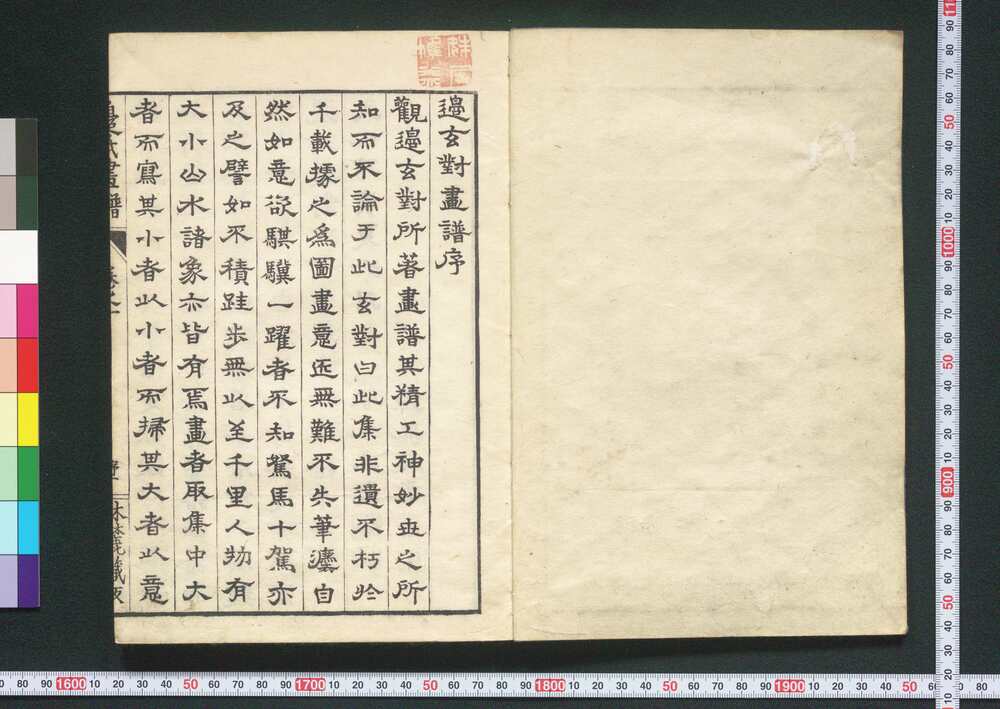 邊玄對畫譜序
觀邊玄對所著畫譜其精工神妙世之所
知而不論于此玄對曰此集非遺不朽於
千載據之爲圖畫意匠無難不失筆灋自
然如意欲騏驥一躍者不知駑馬十駕亦
及之譬如不積跬步無以至千里人物有
大小山水諸象亦皆有焉畫者取集中大
者而寫其小者以小者而掃其大者以意
邊氏畫譜
卷之一
序一
林麓藏版